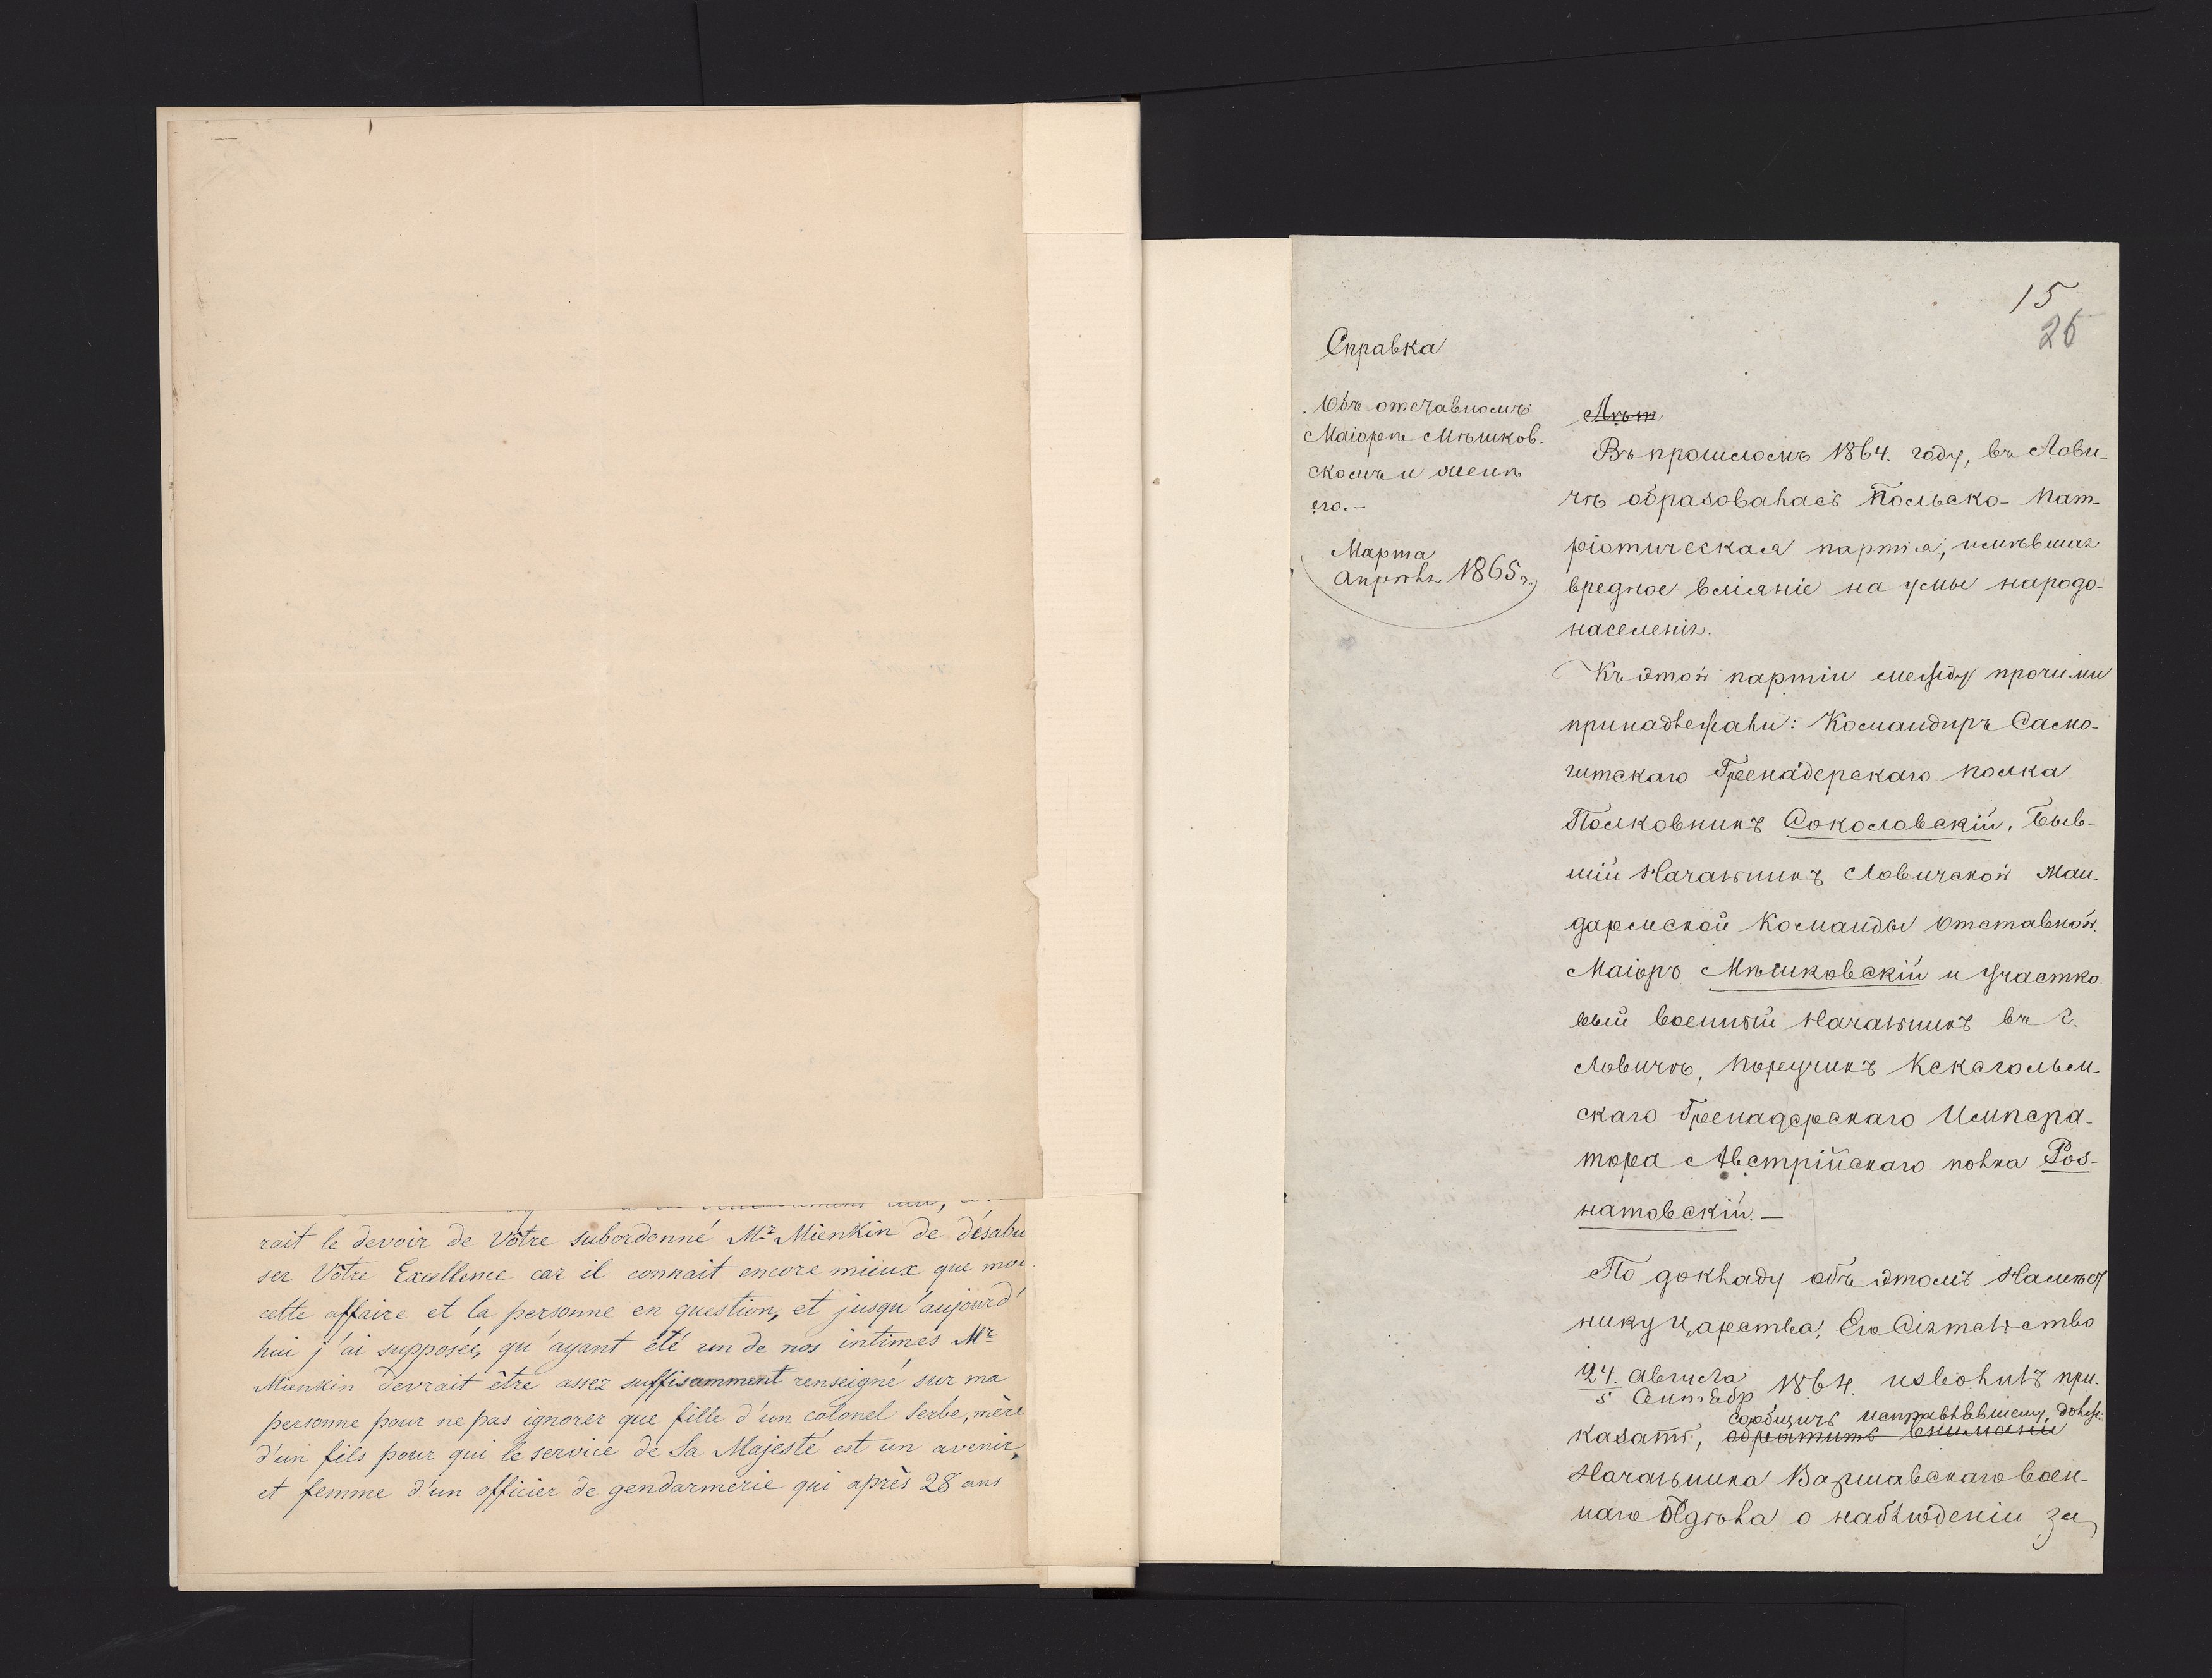 rait le devoir de Vôtre subordonné Mr Mienkin de désabu
ser Vôtre Excellence car il connait encore mieux que moi
cette affaire et la personne en question, et jusqu'aujourd'
hui j'ai supposée, qu'ayant été un de nos intimes Mr
Mienkin devrait être assez suffisamment renseigné sur ma
personne pour ne pas ignorer que fille d'un colonel Serbe, mère
d'un fils pour qui le service de Sa Majesté est un avenir,
et femme d'un officier de gendarmerie qui après 28 ans
15
26
Справка
Объ отставномъ
Маіорѣ Мѣшков-
скомъ и женѣ
его.-
Марта
Апрѣля 1865 г.
Лѣт
Въ прошломъ 1864. году, въ Лови-
чѣ образовалась Польско-пат-
ріотическая партія, имѣвшая
вредное вліяніе на умы народо-
населенія.
Къ этой партіи между прочими
принадлежали: Командиръ Само-
гитскаго Гренадерскаго полка
Полковникъ Соколовскій, Быв-
шій Начальникъ Ловичской Жан-
дармской Команды отставной
Маіоръ Мѣшковскій и Участко-
вый военный Начальникъ въ г.
Ловичѣ, Поручикъ Кексгольм-
скаго Гренадерскаго Императ-
тора Австрійскаго полка Роз-
натовскій.—
По докладу объ этомъ Намѣст
нику Царства, Его Сіятельство
24. Августа
5 Сентябр 1864. изволилъ при-
сообщить исправлявшему долж-
казать, обратить вниманіе
Начальника Варшавскаго Воен-
наго Отдѣла о наблюденіи за